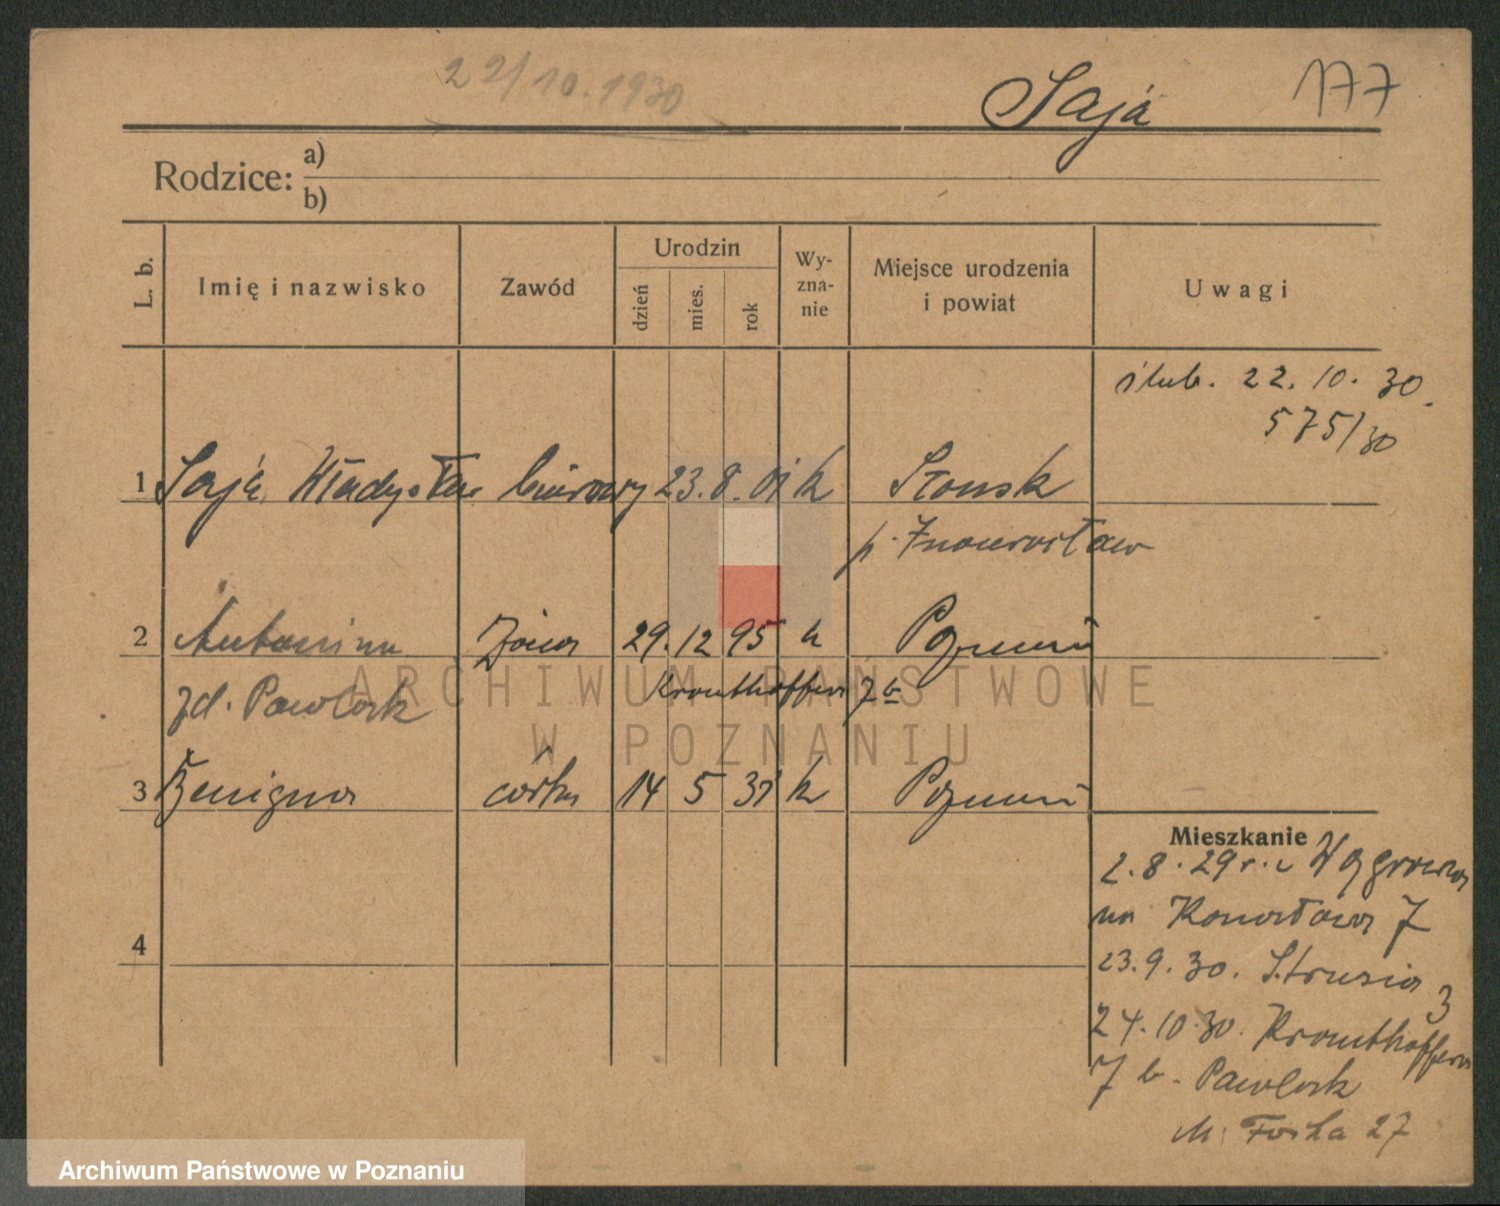 22/10.1930
Saja 177
Rodzice: a)
b)
L. b. Imię i nazwisko Zawód Urodzin dzień mies. rok Wy-zna-nie Miejsce urodzenia i powiat Uwagi
ślub. 22. 10. 30.
575/30
1 Saja Władysław biurowy 23. 8. 01 k Słonsk
p. Inowrocław
2 Antonina żona 29. 12 95 k Poznań
zd. Pawlak Krauthofera 7 b
ARCHIWUM PAŃSTWOWE
W POZNANIU
3 Benigna córka 14 5 31 k Poznań
Mieszkanie
2.8.29 r. z Wągrowca
na Konarzowa 7
23.9.30. Strusia 3
4
24.10.30. Krauthofera
7 b. Pawlak
M. Focha 27
Archiwum Państwowe w Poznaniu